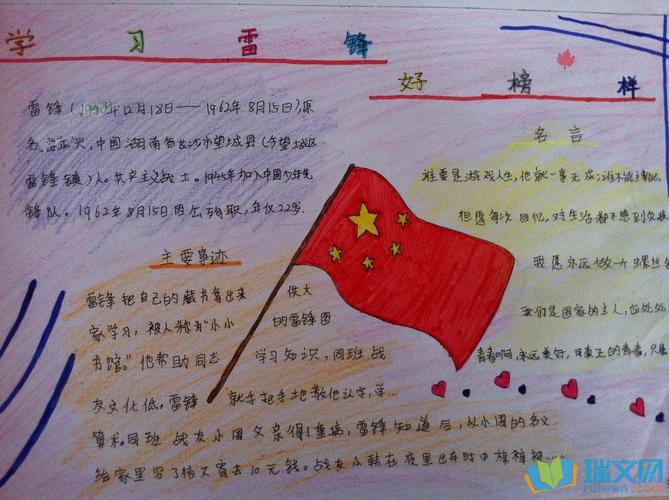 学习雷锋
好榜样
雷锋(1940年12月18日——1962年8月15日)原
名雷正兴,中国湖南省长沙市望城县(今望城区
雷锋镇)人。共产主义战士。1954年加入中国少年先
锋队。1962年8月15日因公殉职,年仅22岁.
主要事迹
雷锋把自己的藏书拿出来 供大
家学习,被人称为“小小 的雷锋图
书馆。”他帮助同志 学习知识,同班战
友文化低,雷锋 就手把手地教他认字,学
算术.同班战友小周父亲得了重病,雷锋知道后,以小周的名义
给家里写了信又寄去10元钱。战友小韩在夜里出车时中棉裤被
名言
谁要是游戏人生,他就一事无成;谁不能主宰
但愿每次回忆,对生活都不感到负疚
我愿永远做一个螺丝
我们是国家的主人,应处处
青春啊,永远美好,可真正的青春,只属
瑞文网
ruiwen.com